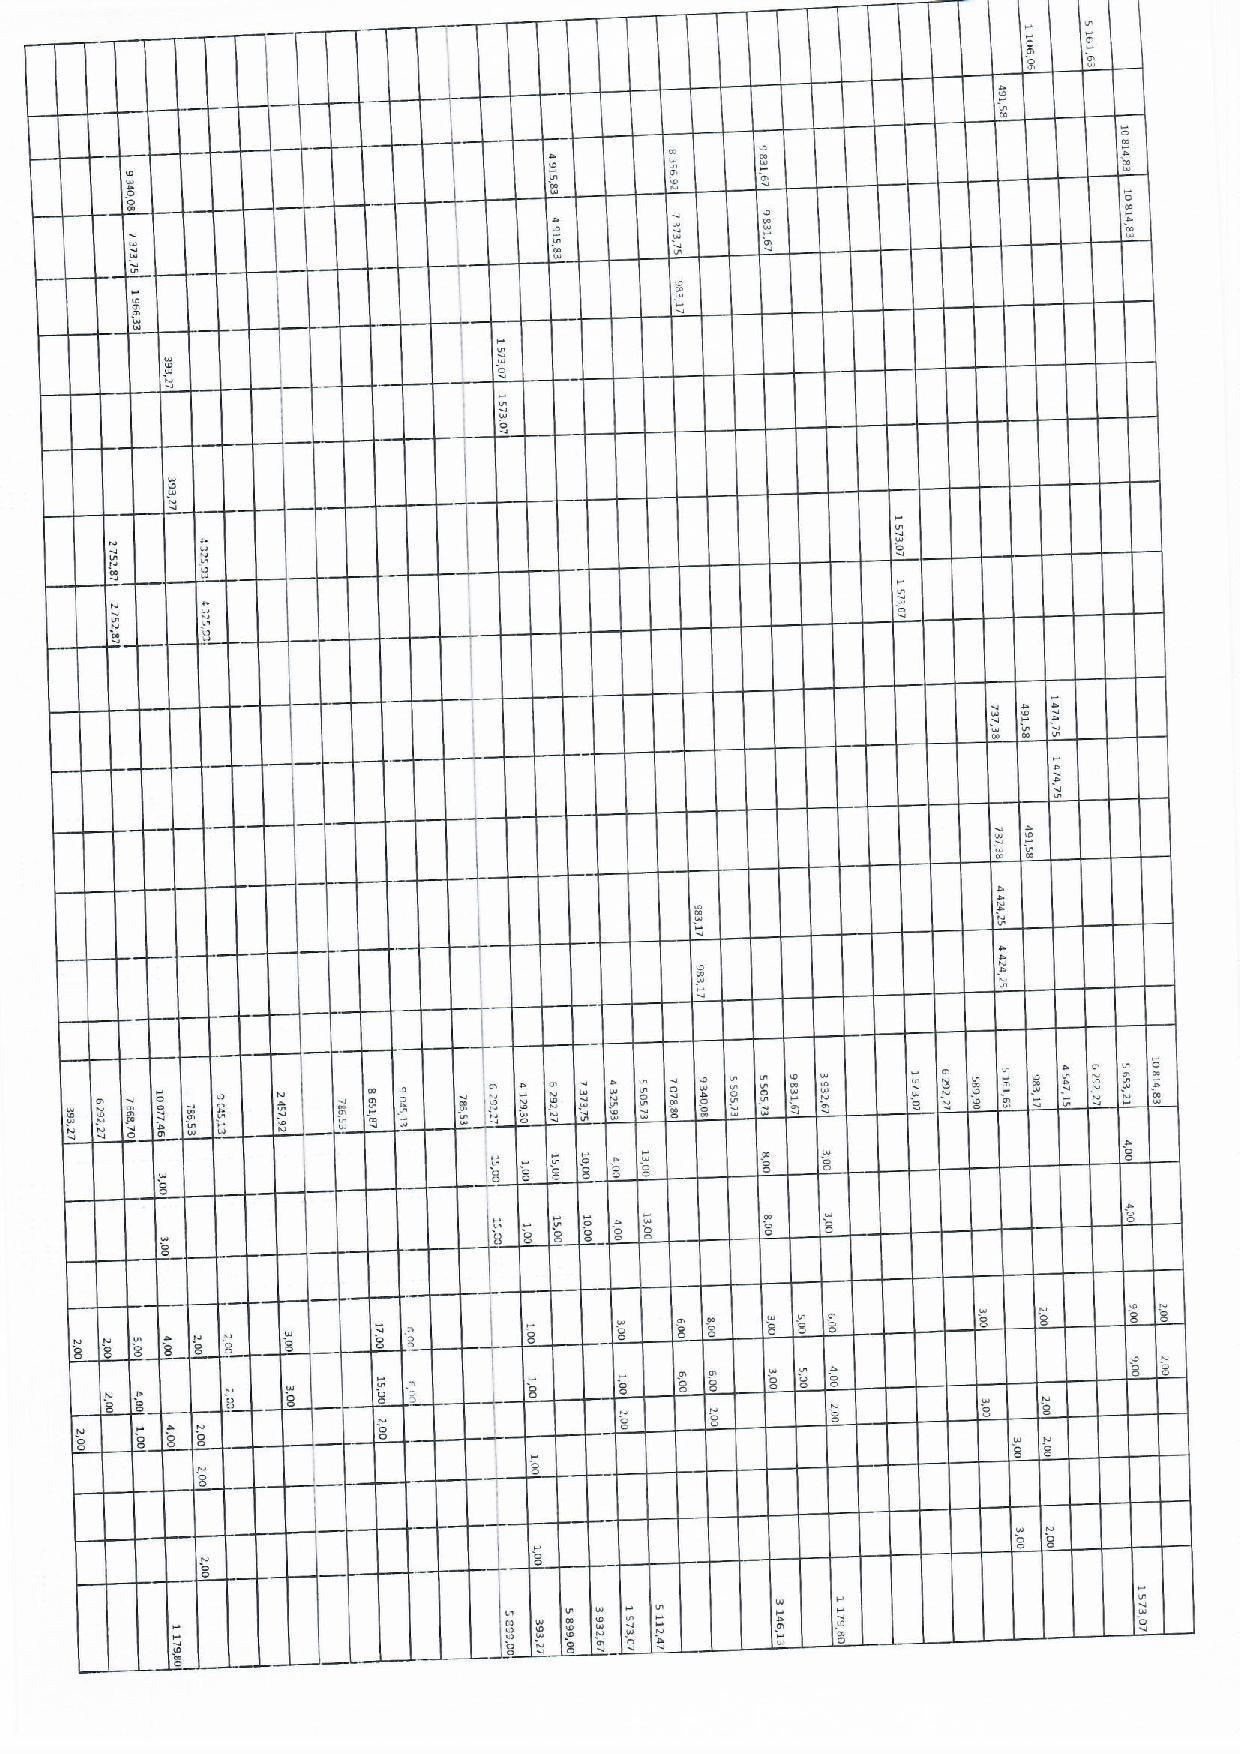 10 814,83 10 814,83 10 814,83 2,00 2,00
5 161,63 5 653,21 4,00 4,00 9,00 9,00 1 573,07
6 292,27
1 106,06 1 474,75 1 474,75 4 547,15
491,58 491,58 491,58 983,17 2,00 2,00 2,00 2,00
737,38 737,38 4 424,25 4 424,25 5 161,63 3,00 3,00
589,90 3,00 3,00
6 292,27
1 573,07 1 573,07 1 573,07
3 932,67 3,00 3,00 6,00 4,00 2,00 1 179,80
9 831,67 9 831,67 9 831,67 5,00 5,00
5 505,73 8,00 8,00 3,00 3,00 3 146,13
5 505,73
8 356,92 7 373,75 983,17 983,17 983,17 9 340,08 8,00 6,00 2,00
7 078,80 6,00 6,00
5 505,73 13,00 13,00 5 112,47
4 325,93 4,00 4,00 3,00 1,00 2,00 1 573,07
4 915,83 4 915,83 7 373,75 10,00 10,00 3 932,67
6 292,27 15,00 15,00 5 899,00
1 573,07 1 573,07 4 129,30 1,00 1,00 1,00 1,00 1,00 1,00 393,27
6 292,27 15,00 15,00 5 899,00
786,53
9 045,13 6,00 6,00
8 651,87 17,00 15,00 2,00
786,53
2 457,92 3,00 3,00
4 325,93 4 325,93 9 045,13 2,00 2,00
393,27 393,27 786,53 2,00 2,00 2,00 2,00
9 340,08 7 373,75 1 966,33 10 077,46 3,00 3,00 4,00 4,00 1 179,80
2 752,87 2 752,87 7 668,70 5,00 4,00 1,00
6 292,27 2,00 2,00
393,27 2,00 2,00